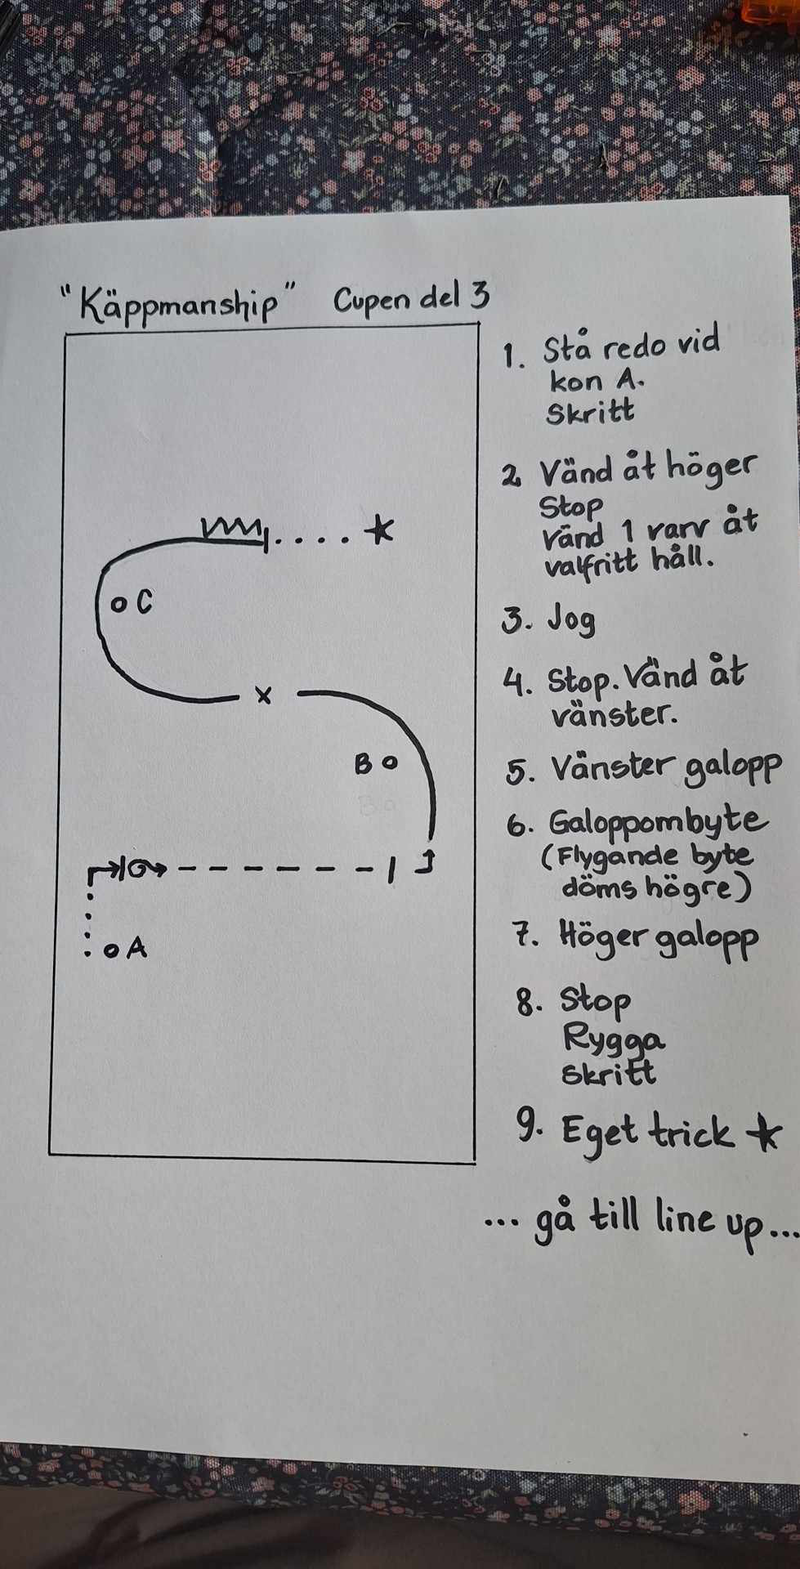 "Käppmanship" Cupen del 3
1. Stå redo vid
kon A.
Skritt
2 Vänd åt höger
Stop
vänd 1 varv åt
valfritt håll.
3. Jog
4. Stop. Vänd åt
vänster.
5. Vänster galopp
6. Galoppombyte
(Flygande byte
döms högre)
7. Höger galopp
8. Stop
Rygga
Skritt
9. Eget trick
... gå till line up...
C
x
B
A